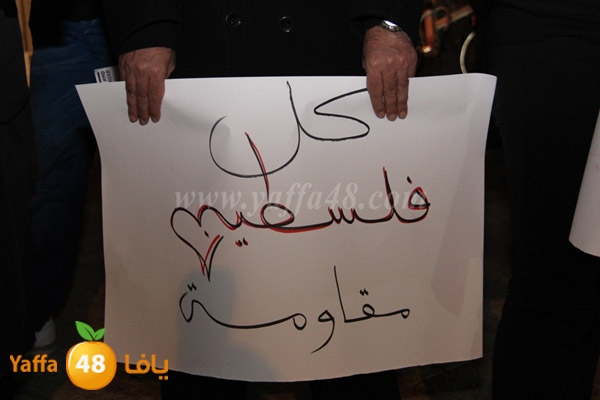 كل
www.yaffa48.com
فلسطين
مقاومة
Yaffa 48 يافا